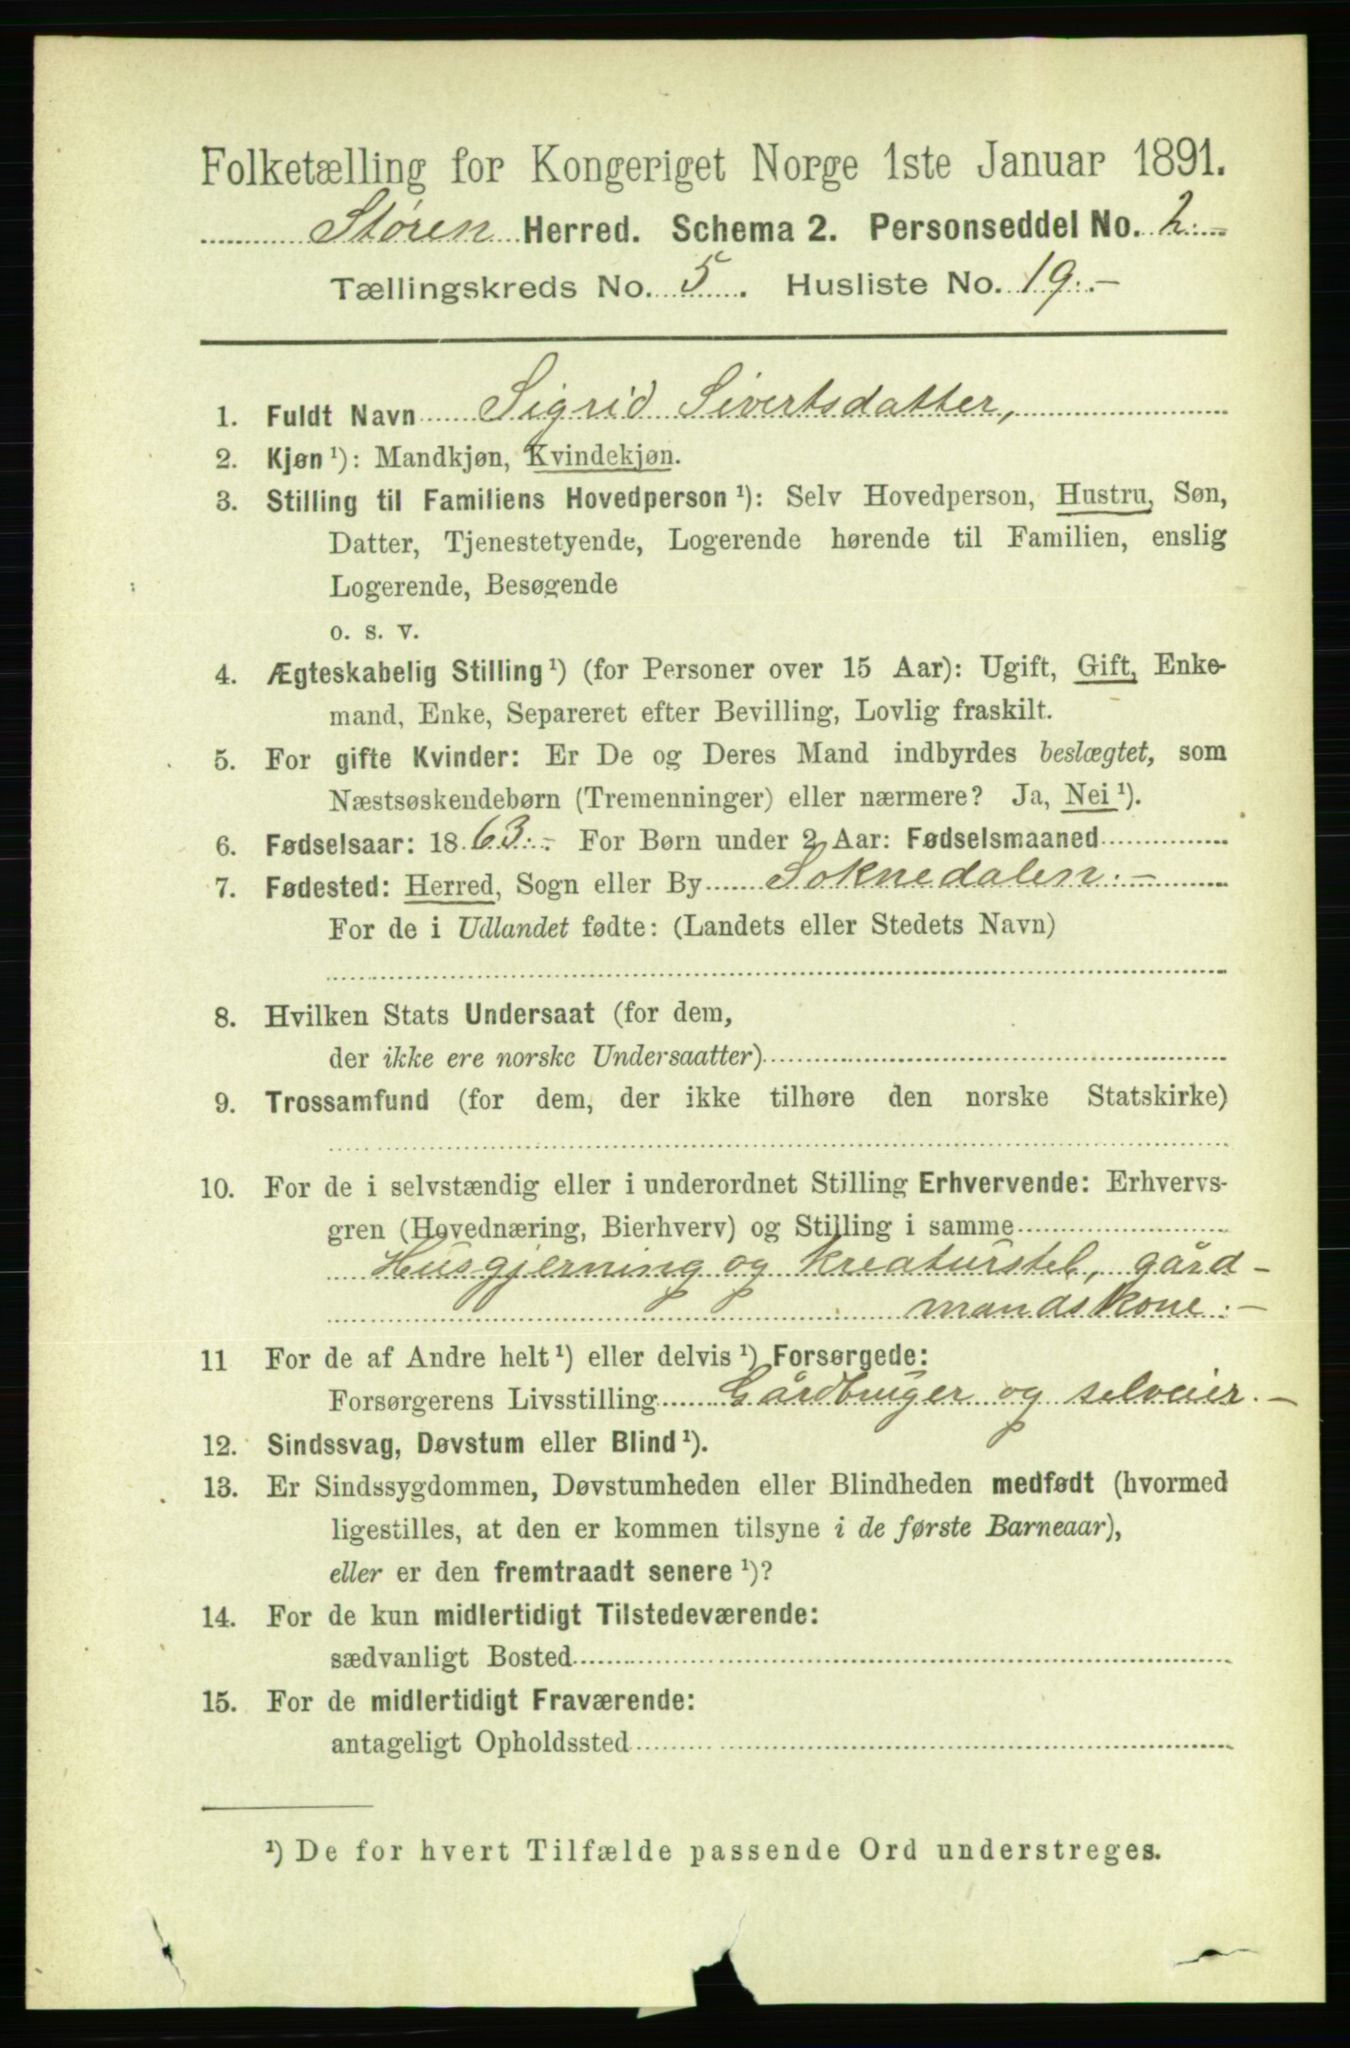 Folketælling for Kongeriget Norge 1ste Januar 1891.
Støren Herred. Schema 2. Personseddel No. 2.-
Tællingskreds No. 5. Husliste No. 19.-
1. Fuldt Navn Sigrid Sivertsdatter,
2. Kjøn ¹): Mandkjøn, Kvindekjøn.
3. Stilling til Familiens Hovedperson ¹): Selv Hovedperson, Hustru, Søn,
Datter, Tjenestetyende, Logerende hørende til Familien, enslig
Logerende, Besøgende
o. s. v.
4. Ægteskabelig Stilling ¹) (for Personer over 15 Aar): Ugift, Gift, Enke-
mand, Enke, Separeret efter Bevilling, Lovlig fraskilt.
5. For gifte Kvinder: Er De og Deres Mand indbyrdes beslægtet, som
Næstsøskendebørn (Tremenninger) eller nærmere? Ja, Nei ¹).
6. Fødselsaar: 1863.- For Børn under 2 Aar: Fødselsmaaned
7. Fødested: Herred, Sogn eller By Soknedalen.-
For de i Udlandet fødte: (Landets eller Stedets Navn)
8. Hvilken Stats Undersaat (for dem,
der ikke ere norske Undersaatter)
9. Trossamfund (for dem, der ikke tilhøre den norske Statskirke)
10. For de i selvstændig eller i underordnet Stilling Erhvervende: Erhvervs-
gren (Hovednæring, Bierhverv) og Stilling i samme
Husgjerning og kreaturstel, gård-
mandskone.-
11 For de af Andre helt ¹) eller delvis ¹) Forsørgede:
Forsørgerens Livsstilling Gårdbruger og selveier.-
12. Sindssvag, Døvstum eller Blind ¹).
13. Er Sindssygdommen, Døvstumheden eller Blindheden medfødt (hvormed
ligestilles, at den er kommen tilsyne i de første Barneaar),
eller er den fremtraadt senere ¹)?
14. For de kun midlertidigt Tilstedeværende:
sædvanligt Bosted
15. For de midlertidigt Fraværende:
antageligt Opholdssted
¹) De for hvert Tilfælde passende Ord understreges.